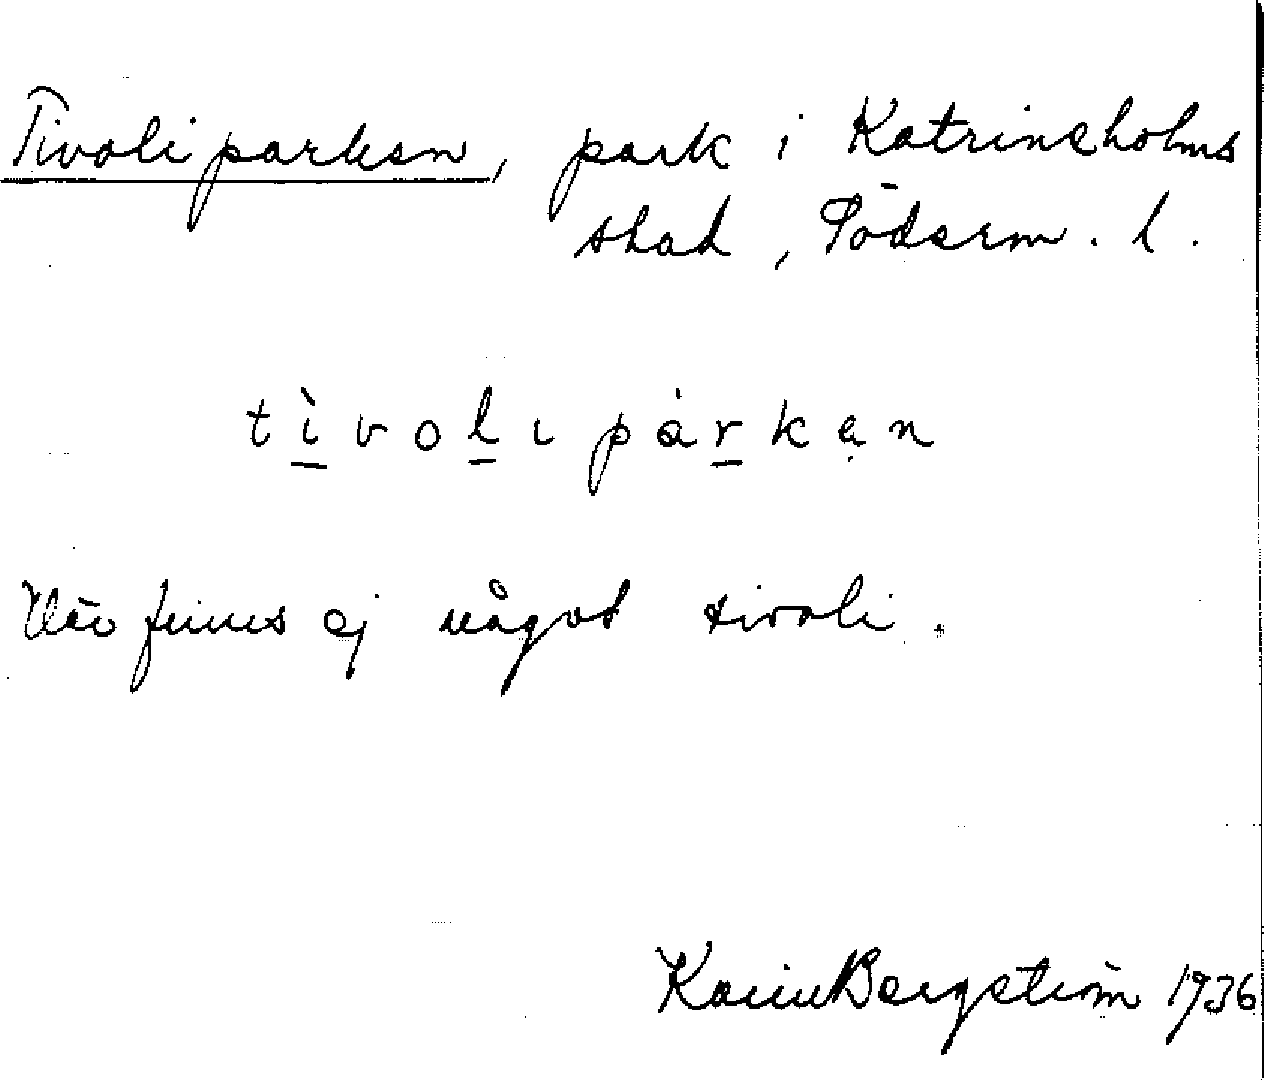 Tivoliparken, park i Katrineholms
stad, Söderm. l.
tìvolɩpàrkạn
Där finns ej något tivoli.
Karin Bergström 1936